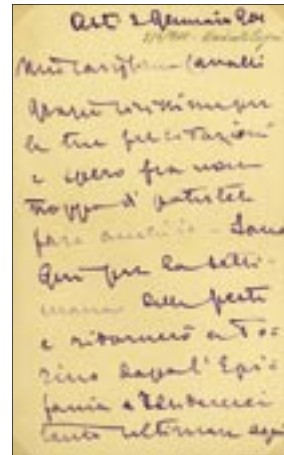 Asti 2 Gennaio 901
Carissimo Cavalli
Grazie tantissime per
le tue felicitazioni
e spero fra non
troppo di potertele
fare anch'io - Sono
qui per la setti-
mana delle feste
e ritornerò a To-
rino dopo l'Epi-
fania e
tanto ultimare ogni